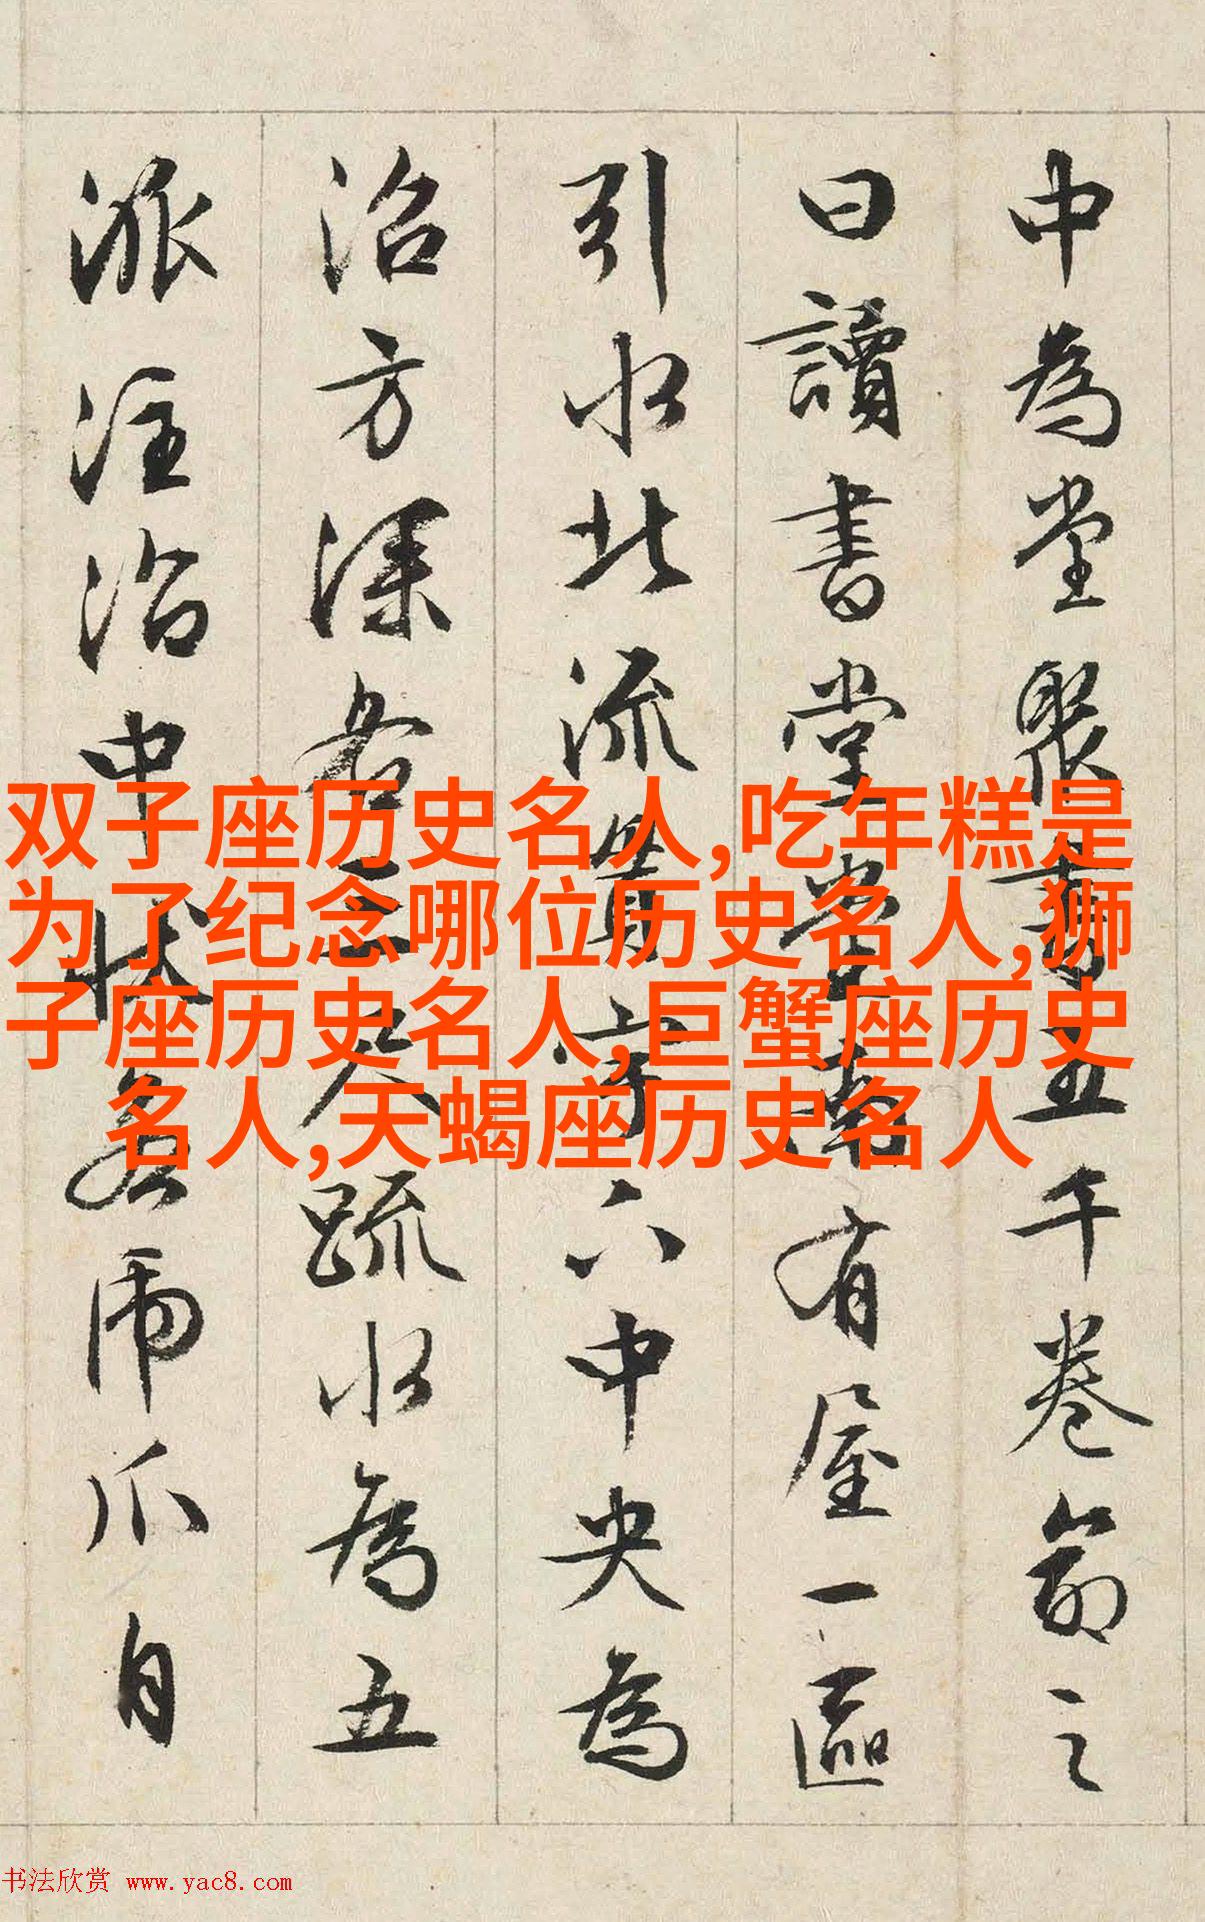 中為堂聚書五千卷命之
曰讀書堂堂南有屋一區
引水北流貫宇下中央為
沼方深各三尺疏水為五
派注沼中狀若虎爪自
双子座历史名人,吃年糕是
为了纪念哪位历史名人,狮
子座历史名人,巨蟹座历史
名人,天蝎座历史名人
书法欣赏 www.yac8.com